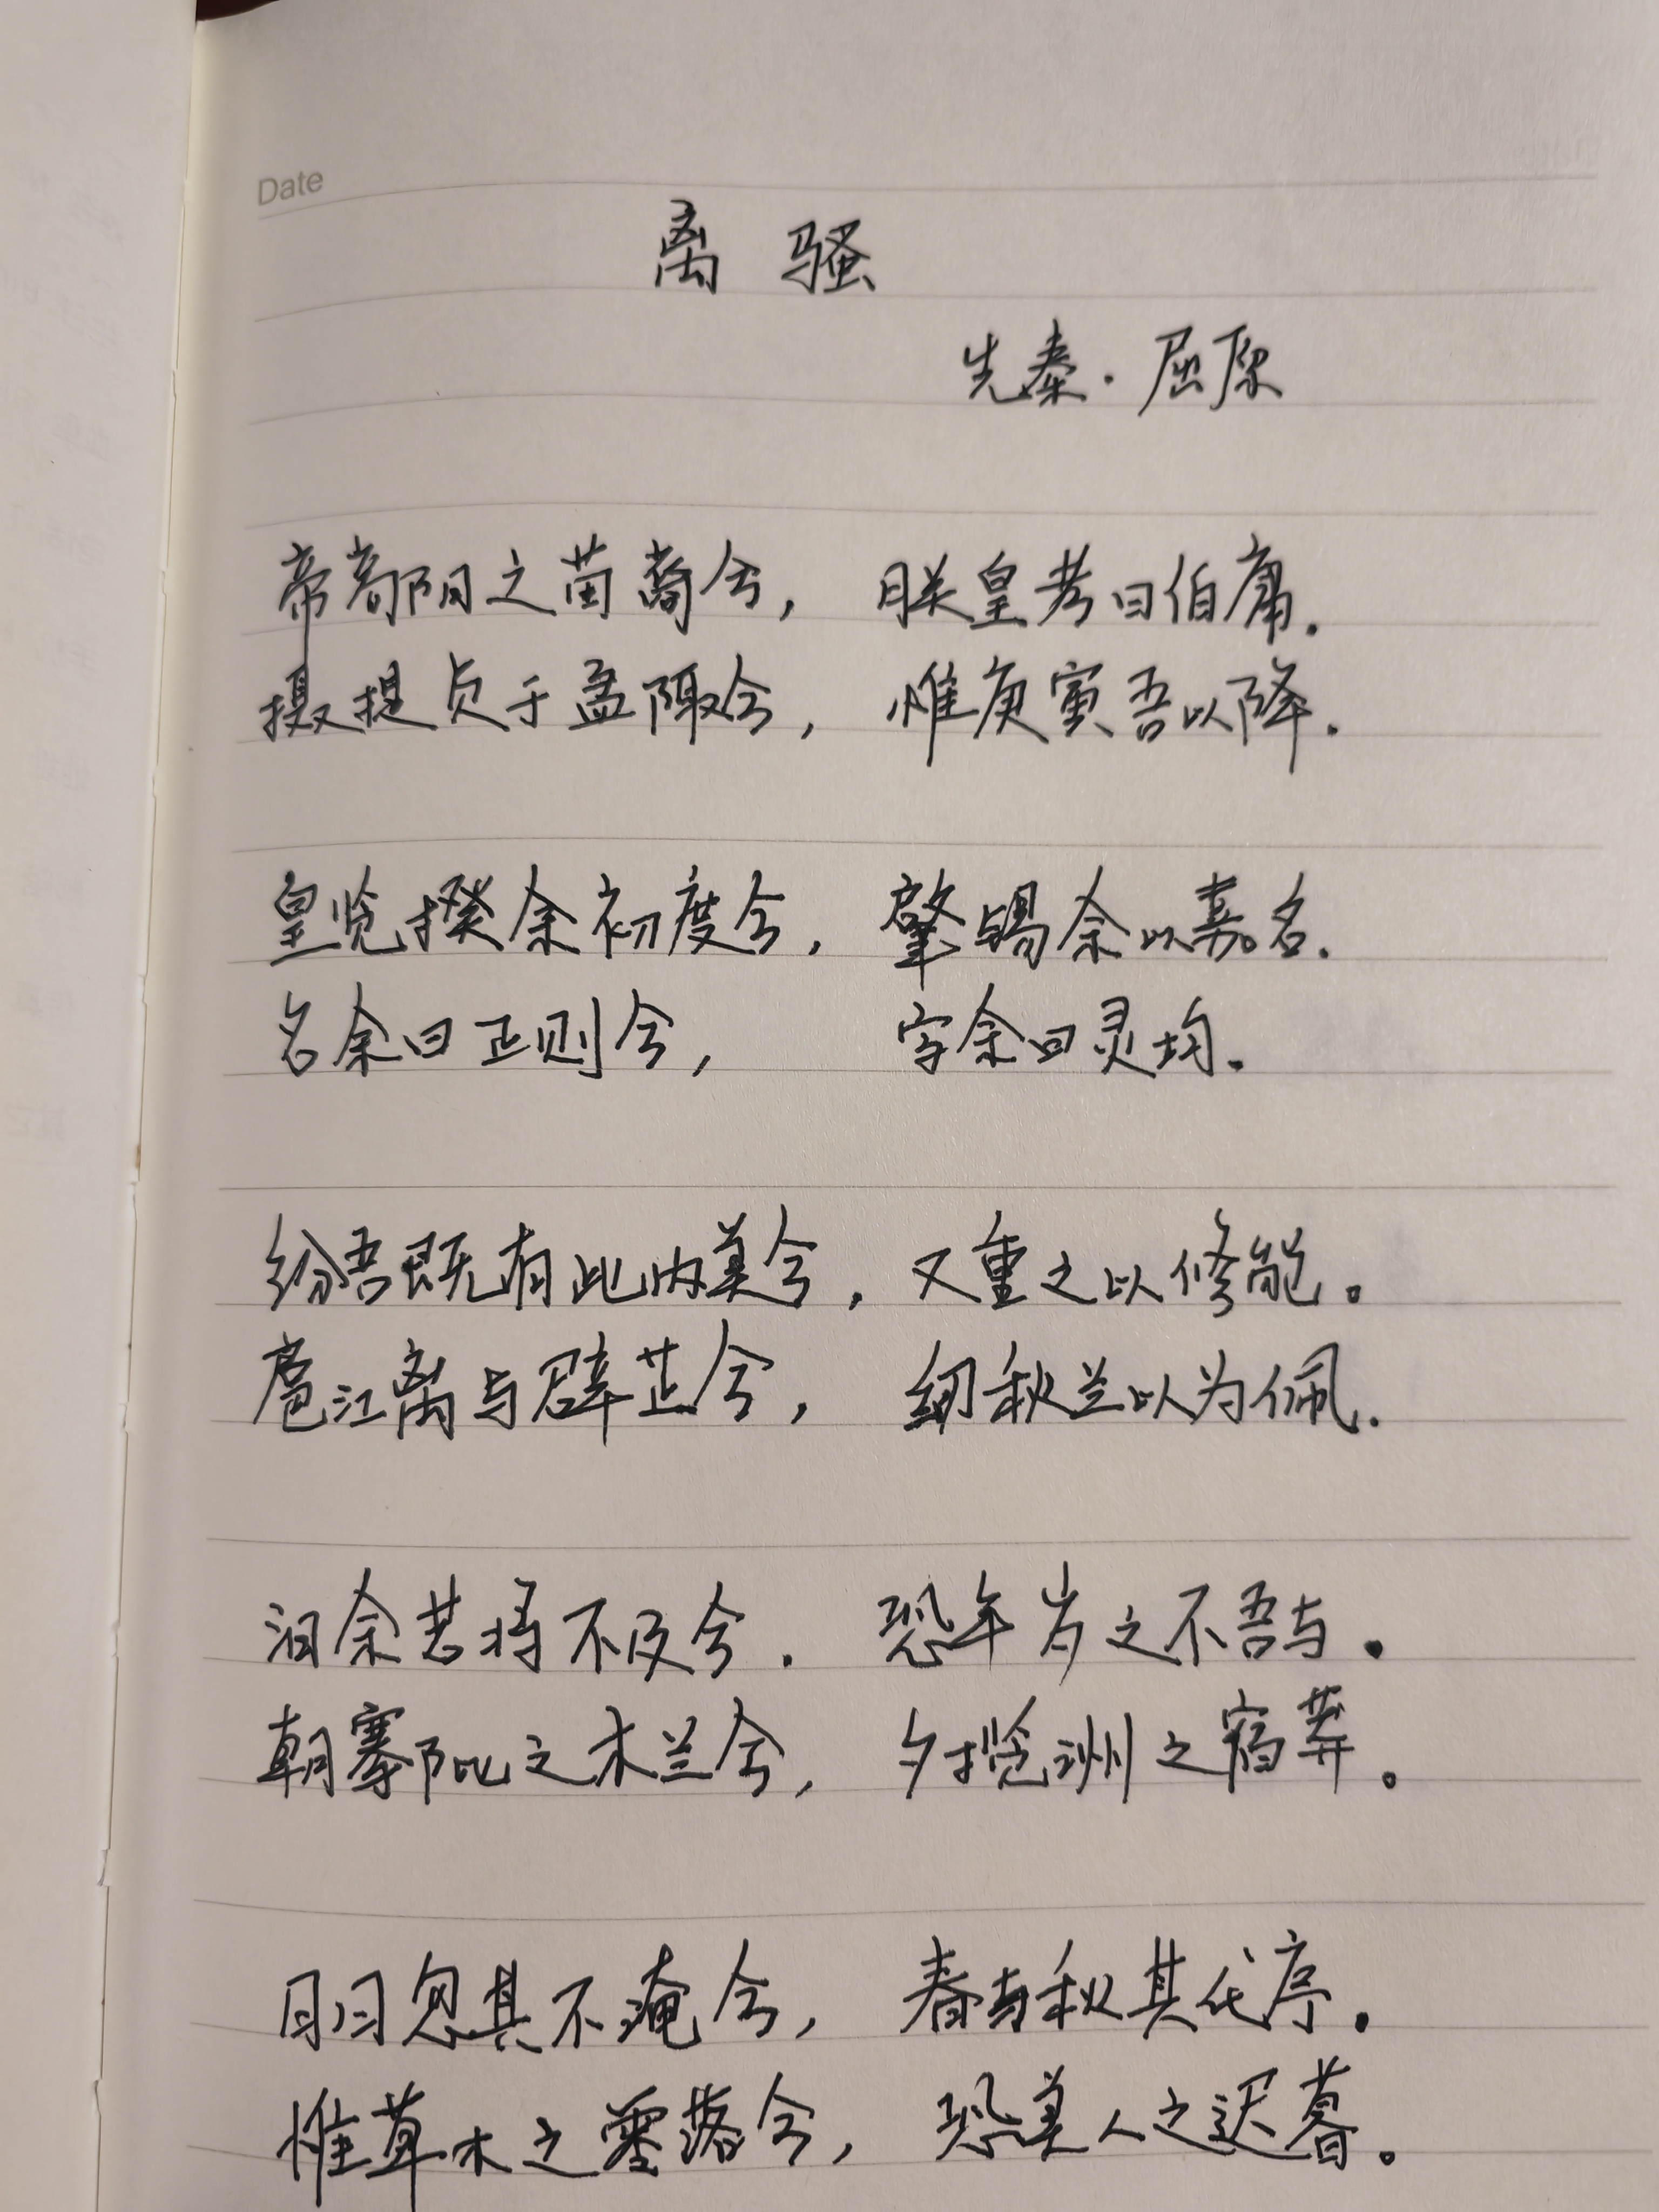 Date
离 骚
先秦·屈原
帝高阳之苗裔兮，朕皇考曰伯庸。
摄提贞于孟陬兮，惟庚寅吾以降。
皇览揆余初度兮，肇锡余以嘉名。
名余曰正则兮，字余曰灵均。
纷吾既有此内美兮，又重之以修能。
扈江离与辟芷兮，纫秋兰以为佩。
汩余若将不及兮，恐年岁之不吾与。
朝搴阰之木兰兮，夕揽洲之宿莽。
日月忽其不淹兮，春与秋其代序。
惟草木之零落兮，恐美人之迟暮。